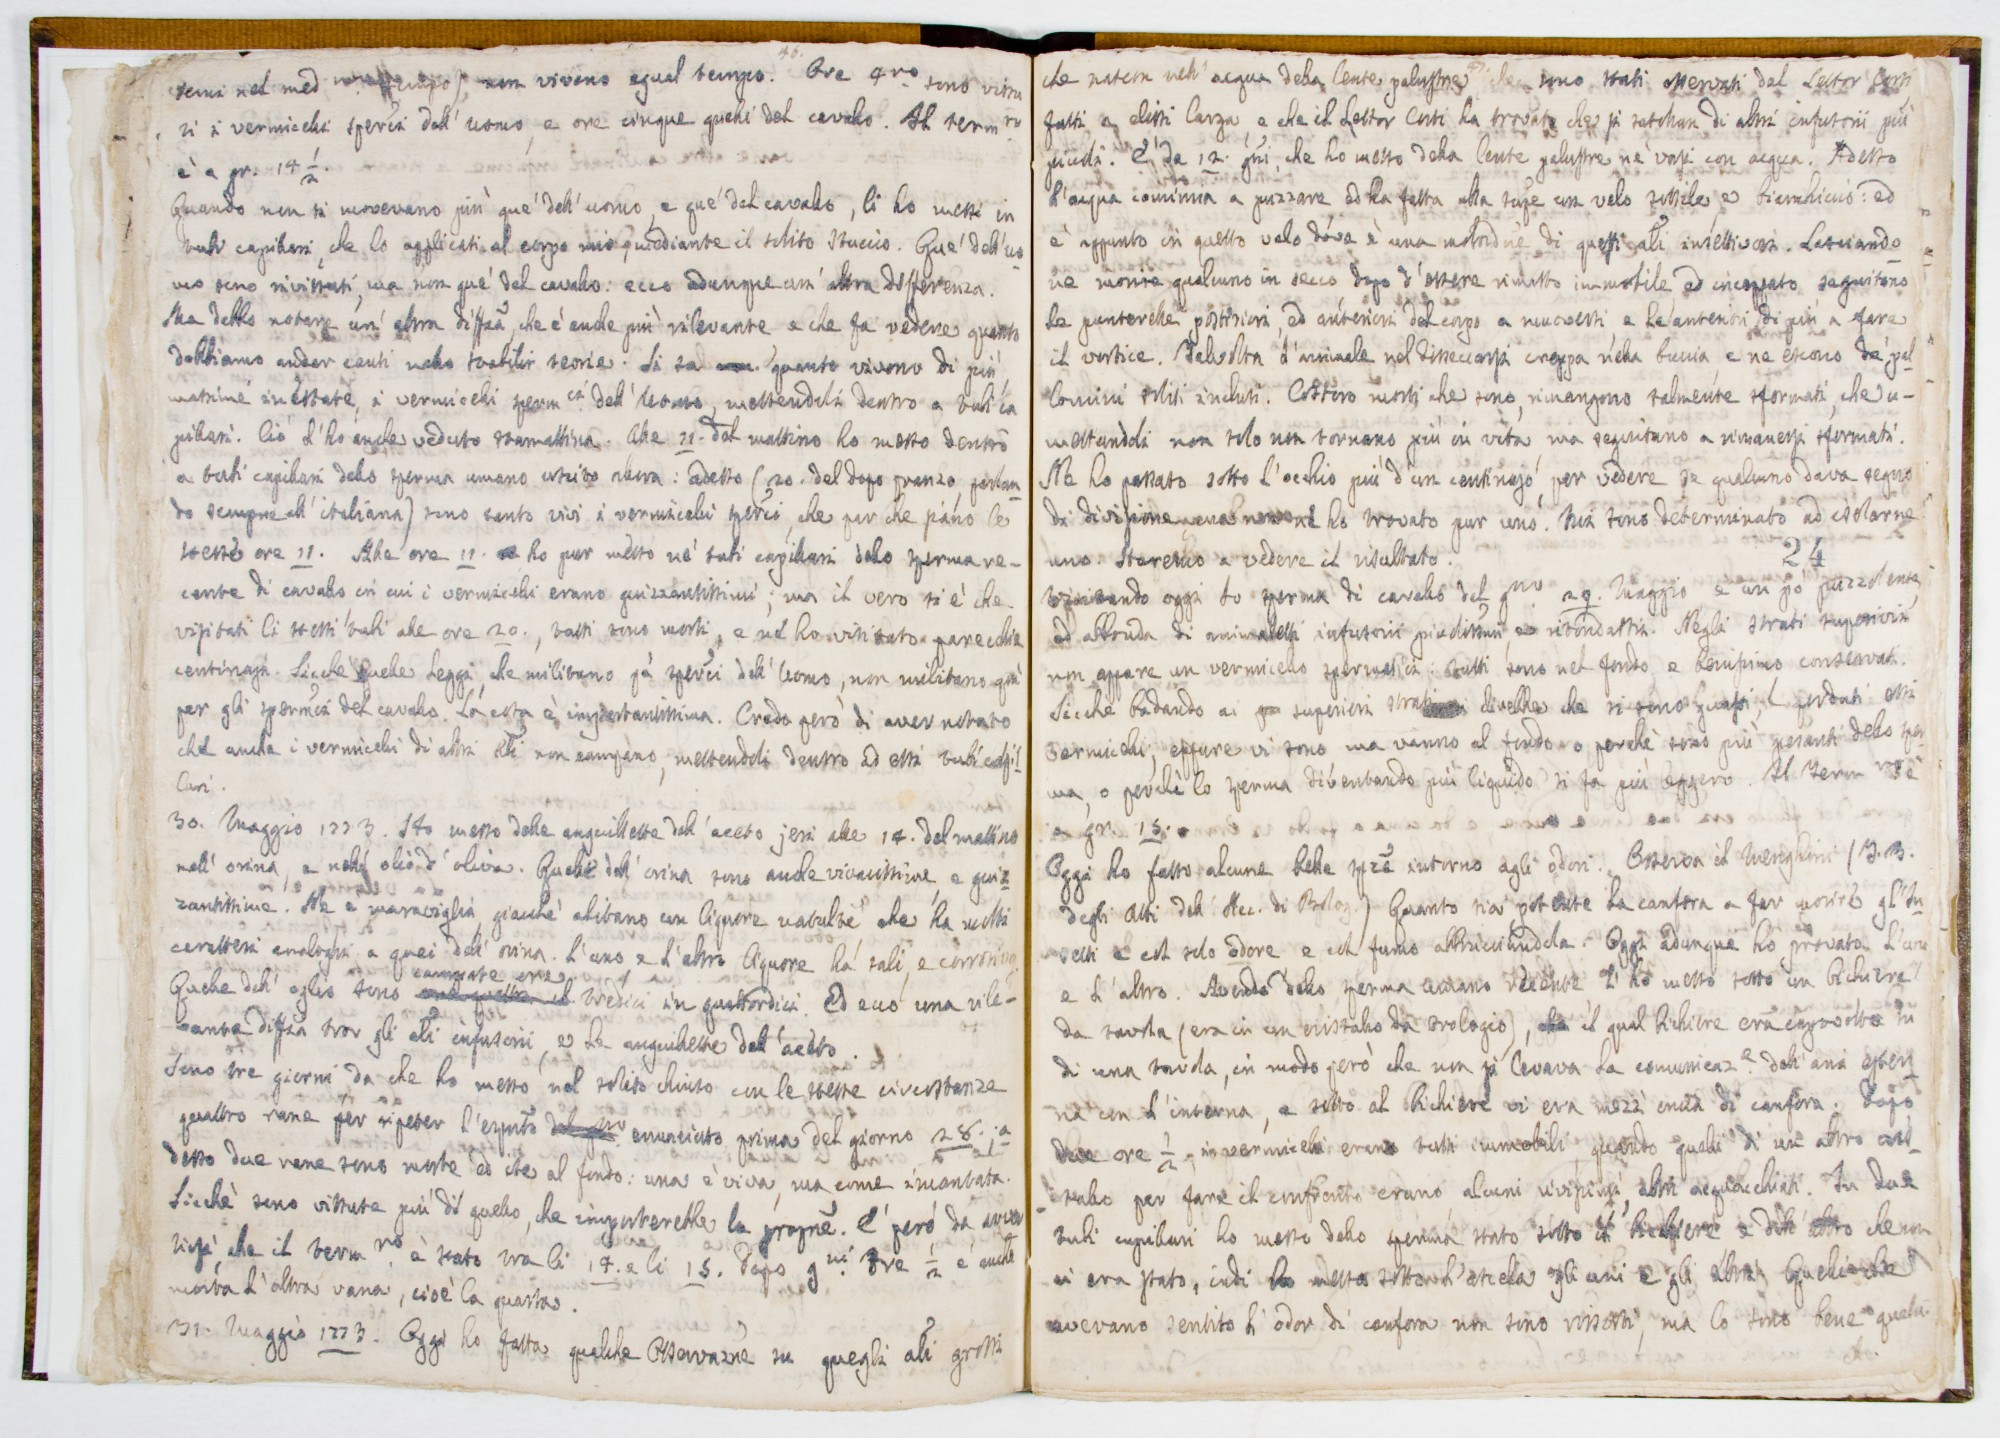 46.
semi nel med.mo tempo) non vivono egual tempo. Ore 4ro sono vissu
ti i vermicelli sperci dell' uomo, e ore cinque quelli del cavallo. Il term.ro
è a gr. 14 1/2.
Quando non si movevano più que' dell' uomo, e que' del cavallo, li ho messi in
tubi capillari, che ho applicati al corpo mio mediante il solito stuccio. Que' dell' uo
mo sono rivissuti, ma non que' del cavallo: ecco adunque un' altra differenza.
Ma debbo notare un' altra diffza, che è anche più rilevante e che fa vedere quanto
dobbiamo andar cauti nello stabilir teorie. Si sa quanto vivono di più
massime in estate, i vermicelli sperm.ci dell' Uomo, mettendoli dentro a tubi ca
pillari. Ciò l' ho anche veduto stamattina. Alle 11. del mattino ho messo dentro
a tubi capillari dello sperma umano uscito allora: adesso (20. del dopo pranzo, parlan
do sempre all' italiana) sono tanto vivi i vermicelli sperci, che par che siano le
stesse ore 11. Alle ore 11. ho pur messo ne' tubi capillari dello sperma re-
cente di cavallo in cui i vermicelli erano guizzantissimi; ma il vero si è che
visitati li stessi tubi alle ore 20., tutti sono morti, e ne ho visitato parecchie
centinaja. Sicchè quelle leggi, che militano pei sperci dell' Uomo, non militano già
per gli spermci del cavallo. La cosa è importantissima. Credo però di aver notato
che anche i vermicelli di altri ali non campano, mettendoli dentro ad essi tubi capil
lari.
30. Maggio 1773. Ho messo delle anguillette dell' aceto jeri alle 14. del mattino
nell' orina, e nell' olio d' oliva. Quelle dell' orina sono anche vivacissime, e guiz
zantissime. Nè è maraviglia, giacchè abitano un liquore naturale che ha molti
caratteri analoghi a quei dell' orina. L' uno e l' altro liquore ha sali, e corrosivo
Quelle dell' oglio sono campate ore tredici in quattordici. Ed ecco una rile-
vante diffza tra gli ali infusorii, e le anguillette dell' aceto.
Sono tre giorni da che ho messo nel solito chiuso con le stesse circostanze
quattro rane per ripeter l' esprito enunciato prima del giorno 28. ja
desso due rane sono morte ed ite al fondo: una è viva, ma come incantata.
Sicchè sono vissute più di quello, che importerebbe la proprne. È però da avver
tirsi, che il term.ro è stato tra li 14. e li 15. Dopo g.ni ore 1/2 è anche
morta l' altra rana, cioè la quarta.
31. Maggio 1773. Oggi ho fatta qualche Osservazne su quegli ali grossi
che nascon nell' acqua della lente palustre che sono stati osservati dal Lettor Corti
fatti a elissi larga, e che il Lettor Corti ha trovato che si satollan di altri infusorii più
piccoli. È da 12. gni che ho messo della lente palustre ne' vasi con acqua. Adesso
l' acqua comincia a puzzare ed ha fatta alla supe un velo sottile e bianchiccio: ed
è appunto in questo velo dove è una moltdne di questi ali insettivori. Lasciando
ne morire qualcuno in secco dopo d' essere rimasto immobile ed increspato seguitano
le punterelle posteriori, ed anteriori del corpo a muoversi e le anteriori di più a fare
il vortice. Talvolta l' animale nel disseccarsi creppa nella buccia, e ne escono de' pal
loncini soliti inclusi. Costoro morti che sono, rimangono talmente sformati, che u-
mettandoli non solo non tornano più in vita ma seguitano a rimanersi sformati.
Ne ho passato sotto l' occhio più d' un centinajo, per vedere se qualcuno dava segno
di divisione ma non ne ho trovato pur uno. Mi sono determinato ad isolarne
uno. Staremo a vedere il risultato.
24
Visitando oggi lo sperma di cavallo del gno 29. Maggio è un pò puzzolente,
ed abbonda di animaletti infusorii piccolissimi e ritondastri. Negli strati superiori
non appare un vermicello spermatico: tutti sono nel fondo e benissimo conservati.
Sicchè badando ai superiori strati direbbe che si sono guasti e perduti essi
vermicelli, eppure vi sono ma vanno al fondo o perchè sono più pesanti dello sper
ma, o perchè lo sperma diventando più liquido si fa più leggero. Il Term.ro è
a gr. 15.
Oggi ho fatto alcune belle sprze intorno agli odori. Osserva il Menghini (T. 3.
degli Atti dell' Acc. di Bolog.) quanto sia potente la canfora a far morire gl' In
setti e col solo odore e col fumo abbruciandola. Oggi adunque ho provato l' uno
e l' altro. Avendo dello sperma umano recente l' ho messo sotto un bichiere
da tavola (era in un cristallo da orologio), il qual bichiere era capovolto su
di una tavola, in modo però che non si levava la comunicaz.e dell' aria ester
na con l' interna, e sotto al bichiere vi era mezz' oncia di canfora. Dopo
due ore 1/2 i vermicelli erano tutti immobili quando quelli di un altro cris-
tallo per fare il confronto erano alcuni vivissimi, altri acquacchiati. In due
tubi capillari ho messo dello sperma stato sotto il bichiere e dell' altro che non
vi era stato, indi ho messo sotto l' ascella gli uni e gli altri. Quelli che
avevano sentito l' odor di canfora non sono rivissuti, ma lo sono bene quelli